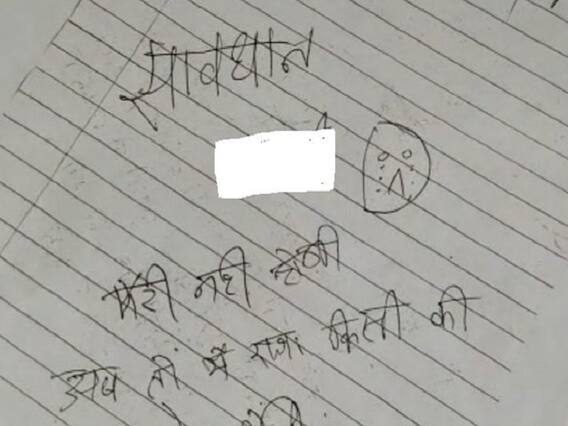 सावधान
मेरी नही होगी
अब तो मैं राजा किसी की